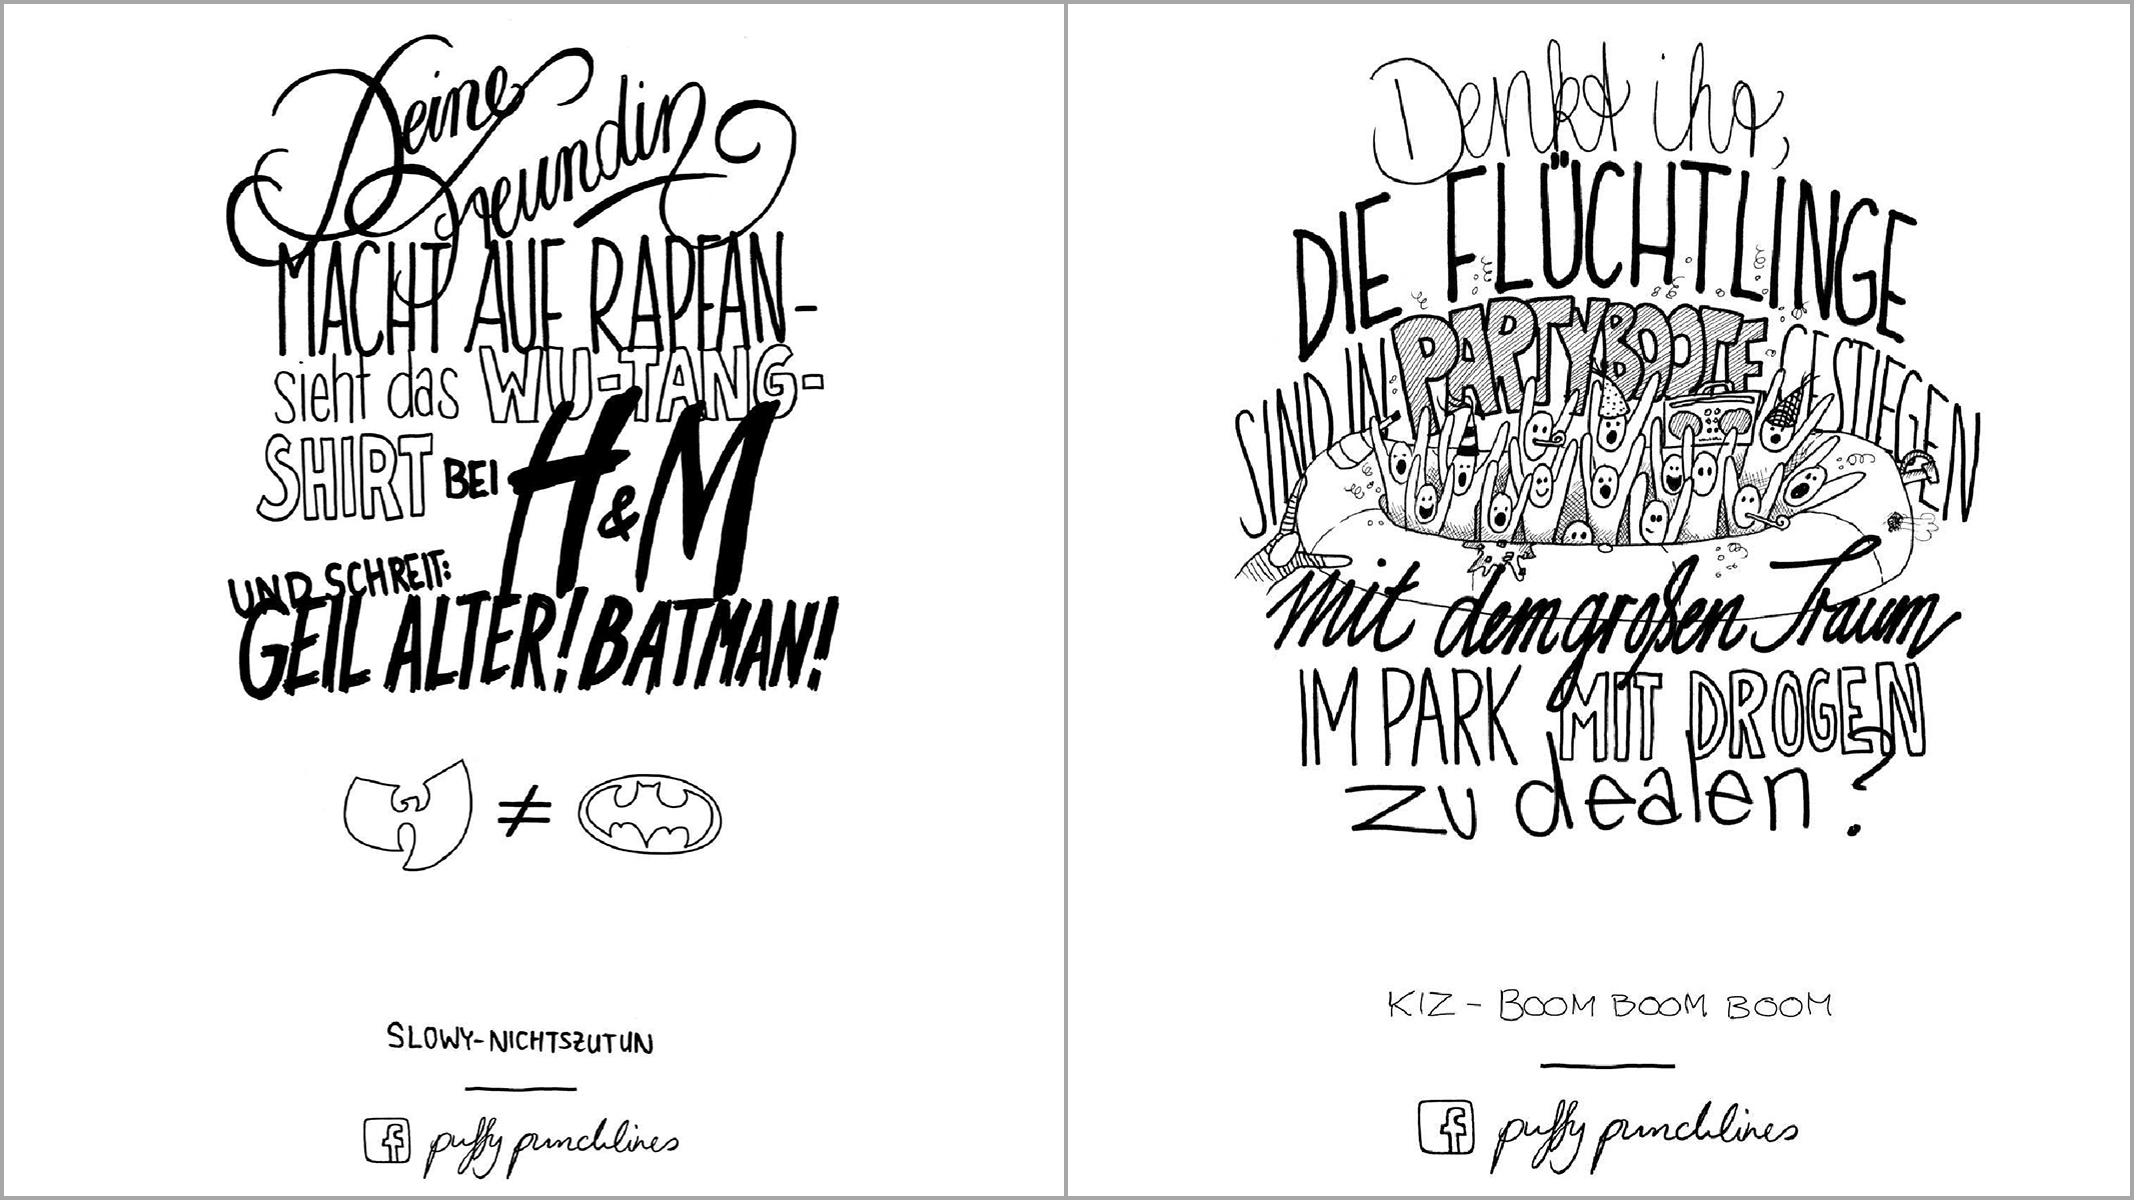 Deine
Freundin
MACHT AUF RAPFAN-
sieht das WU-TANG-
SHIRT BEI H&M
UND SCHREIT:
GEIL ALTER! BATMAN!
≠
SLOWY-NICHTSZUTUN
f puffy punchlines
Denkt ihr,
DIE FLÜCHTLINGE
SIND IN PARTYBOOTE GESTIEGEN
mit dem großen Traum
IM PARK MIT DROGEN
zu dealen?
KIZ - BOOM BOOM BOOM
f puffy punchlines